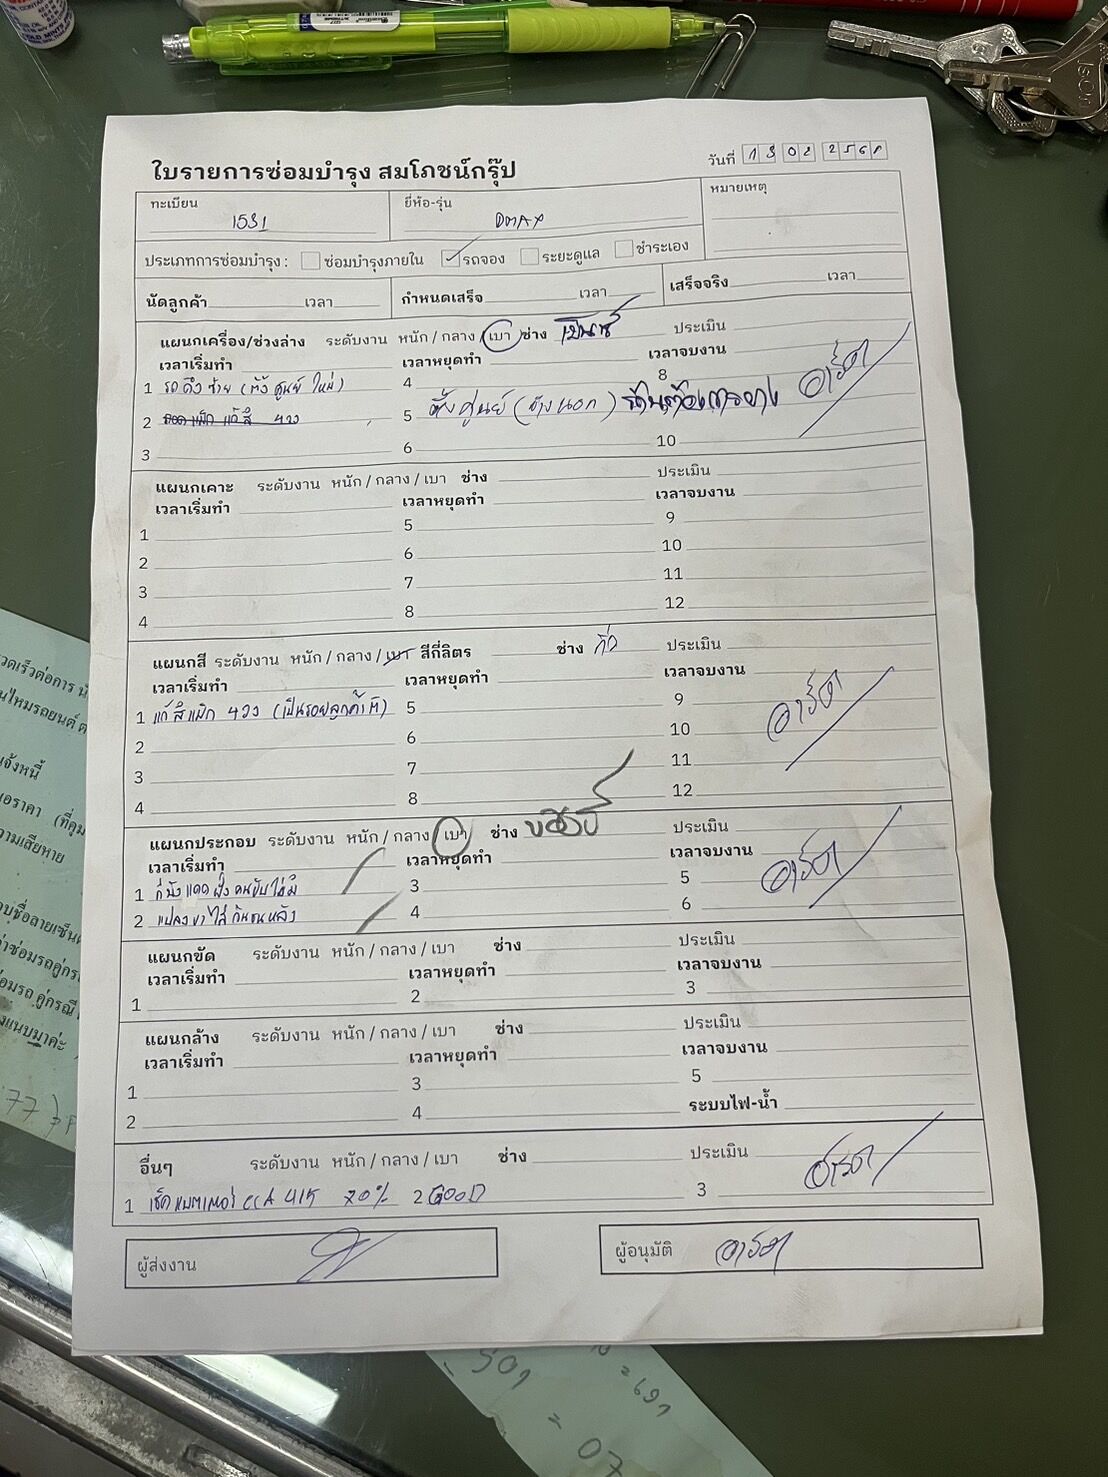 ใบรายการซ่อมบำรุง สมโภชน์กรุ๊ป
วันที่ 13 02 256
ทะเบียน 1531 ยี่ห้อ-รุ่น DMAX หมายเหตุ
ประเภทการซ่อมบำรุง : ซ่อมบำรุงภายใน รถจอง ระยะดูแล ชำระเอง
นัดลูกค้า เวลา กำหนดเสร็จ เวลา เสร็จจริง เวลา
แผนกเครื่อง/ช่วงล่าง ระดับงาน หนัก / กลาง / เบา ช่าง ประเมิน
เวลาเริ่มทำ เวลาหยุดทำ เวลาจบงาน
1 รถดึงซ้าย (ตั้งศูนย์ใหม่) 4 8
2 แก้สี 4วง 5 ตั้งศูนย์ (ข้างนอก) อาร์ต
3 6 10
แผนกเคาะ ระดับงาน หนัก / กลาง / เบา ช่าง ประเมิน
เวลาเริ่มทำ เวลาหยุดทำ เวลาจบงาน
1 5 9
2 6 10
3 7 11
4 8 12
แผนกสี ระดับงาน หนัก / กลาง / เบา สีกี่ลิตร ช่าง ประเมิน
เวลาเริ่มทำ เวลาหยุดทำ เวลาจบงาน
1 แก้สีแม็ก 4วง (เป็นรอยลูกค้าติ) 5 9
2 6 10 อาร์ต
3 7 11
4 8 12
แผนกประกอบ ระดับงาน หนัก / กลาง / เบา ช่าง ประเมิน
เวลาเริ่มทำ เวลาหยุดทำ เวลาจบงาน
1 ที่บังแดดฝั่งคนขับไม่มี 3 5 อาร์ต
2 แปลงขาใส่กันชนหลัง 4 6
แผนกขัด ระดับงาน หนัก / กลาง / เบา ช่าง ประเมิน
เวลาเริ่มทำ เวลาหยุดทำ เวลาจบงาน
1 2 3
แผนกล้าง ระดับงาน หนัก / กลาง / เบา ช่าง ประเมิน
เวลาเริ่มทำ เวลาหยุดทำ เวลาจบงาน
1 3 5
2 4 ระบบไฟ-น้ำ
อื่นๆ ระดับงาน หนัก / กลาง / เบา ช่าง ประเมิน
1 เช็คแบตเตอรี่ CCA 415 70% 2 GOOD 3 อาร์ต
ผู้ส่งงาน ผู้อนุมัติ อาร์ต